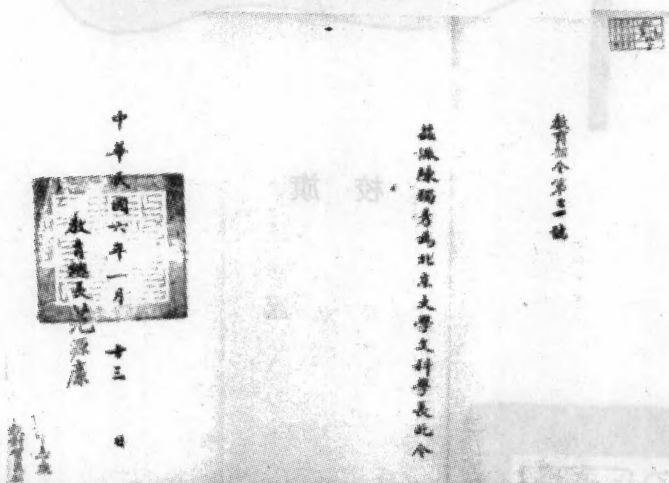 教育部令第三號
茲派陳獨秀為北京大學文科學長此令
中華民國六年一月十三日
教育總長范源廉
校旗